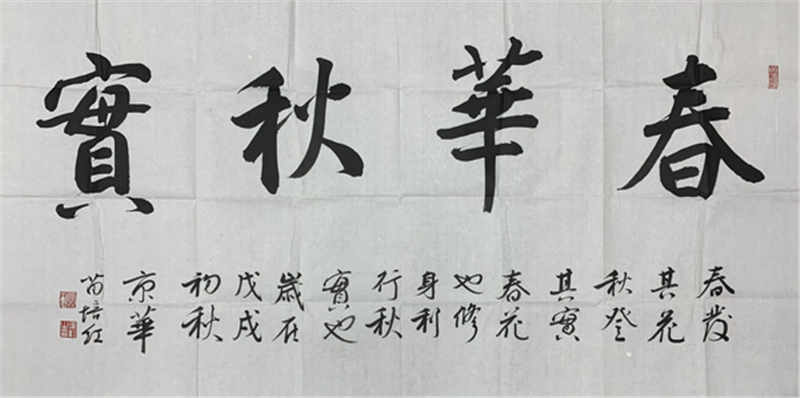 春華秋實
春發
其花
秋登
其實
春花
也修
身利
行秋
實也
歲在
戊戌
初秋
京華
苗培红